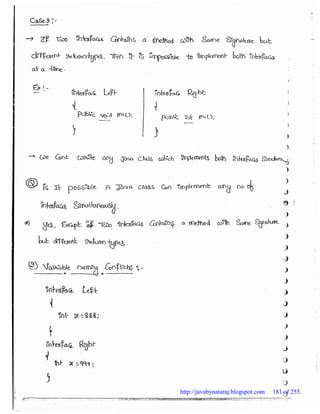 Case3 :-
→ If Two interfaces Contains a method with Same Signature but
different return types. Then it is impossible to implement both interfaces
at a time.
Ex :-
interface Left
{
public void m1();
}
interface Right
{
public int m1();
}
→ We Cant write any Java Class which implements both interfaces Simultaneously
Q) is it possible A Java class Can implement any no of
interfaces Simultaneously.
A) Yes, Except if Two interfaces Containing a method with Same Signature
but different return types.
2) Variable naming Conflicts :-
interface Left
{
int x=888;
}
interface Right
{
int x=999;
}
http://javabynataraj.blogspot.com 181 of 255.